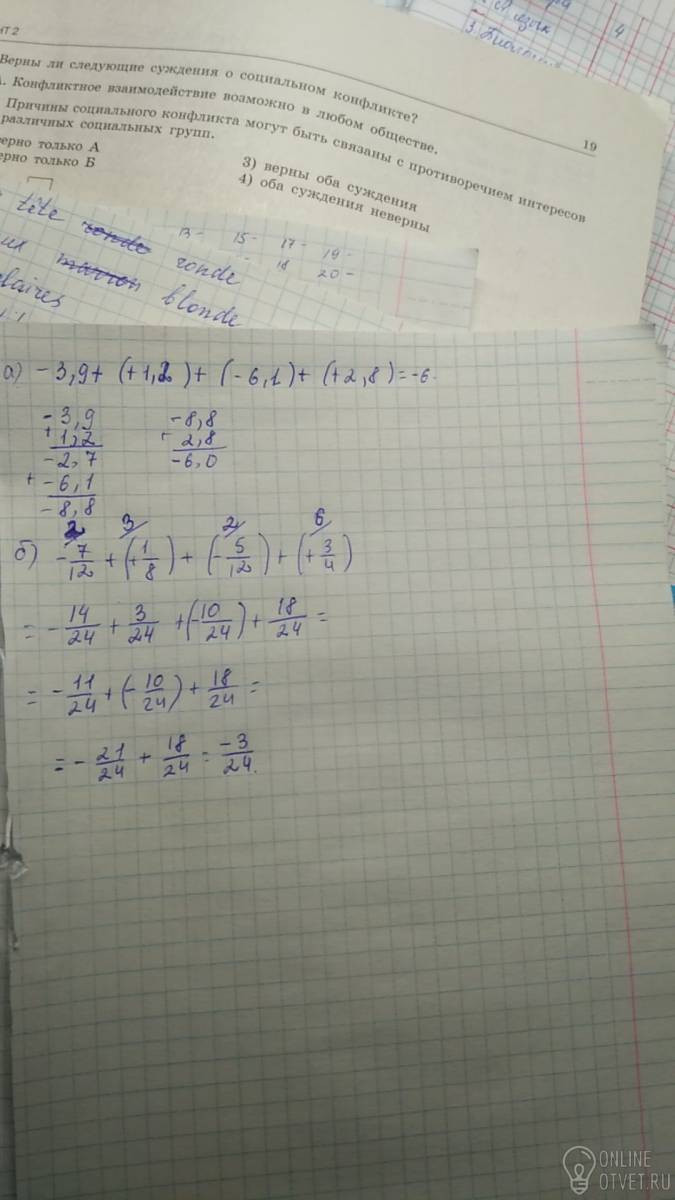 НТ 2
Верны ли следующие суждения о социальном конфликте?
А. Конфликтное взаимодействие возможно в любом обществе.
Причины социального конфликта могут быть связаны с противоречием интересов
различных социальных групп.
ерно только А
ерно только Б
3) верны оба суждения
4) оба суждения неверны
19
4
tête ronde ronde
marron blonde
laires
13- 15- 17- 19-
18 20-
а) -3,9+ (+1,2) + (-6,1) + (+2,8) = -6.
-3,9
+ 1,2
-2,7
+ -6,1
-8,8
-8,8
+ 2,8
-6,0
2 3 2 6
б) -7/12 + (+1/8) + (-5/12) + (+3/4)
= -14/24 + 3/24 + (-10/24) + 18/24 =
= -11/24 + (-10/24) + 18/24 =
= -21/24 + 18/24 = -3/24.
ONLINE
OTVET.RU